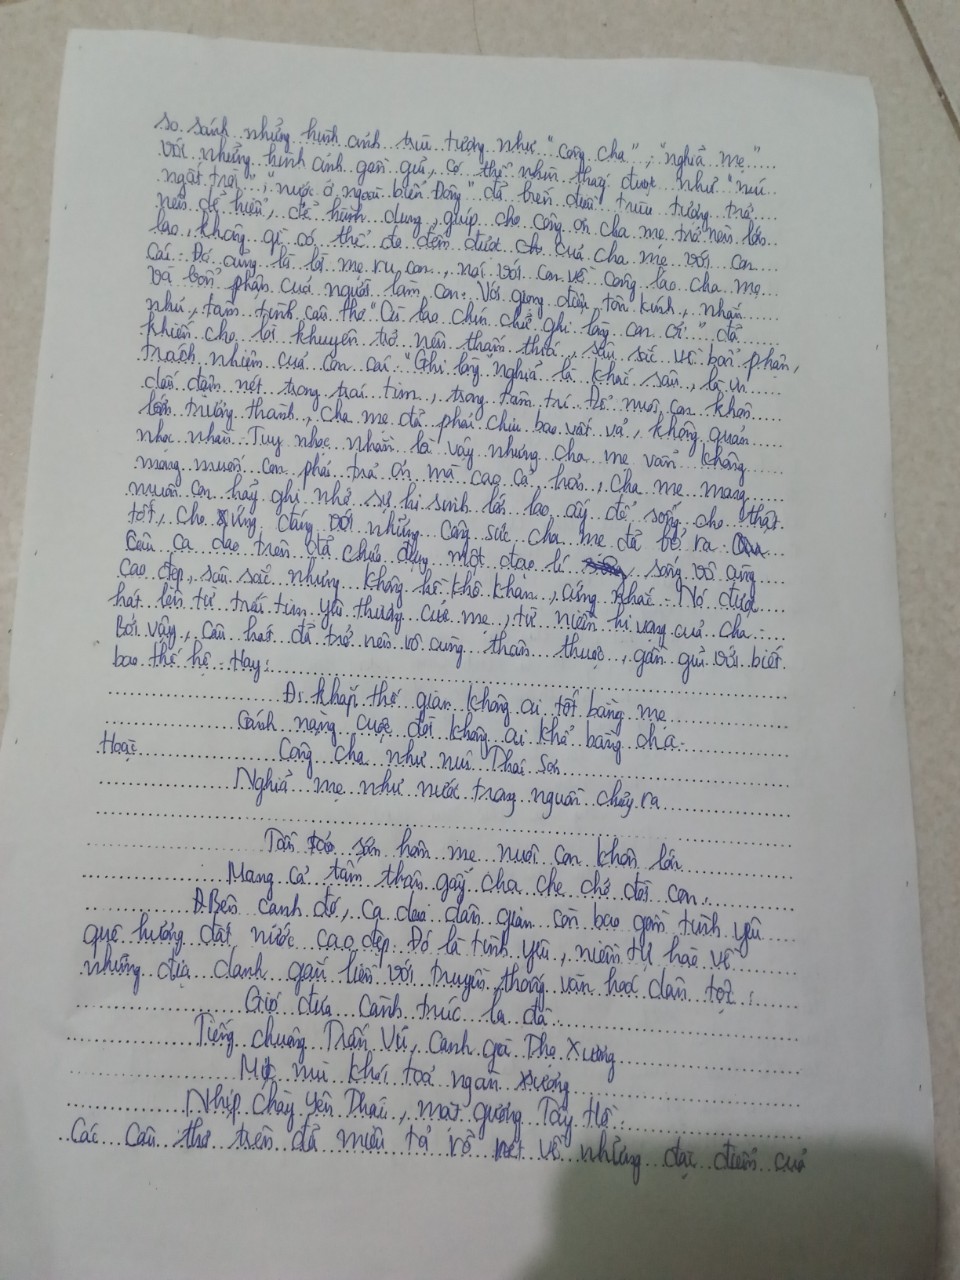 so sánh những hình ảnh trừu tượng như "công cha", "nghĩa mẹ"
với những hình ảnh gần gủi, có thể nhìn thấy được như "núi
ngất trời", "nước ở ngoài biển Đông" đã biến điều trừu tượng trở
nên dể hiểu, dể hình dung, giúp cho công ơn cha mẹ trở nên lớn
lao, không gì có thể đo đếm được của cha mẹ với con
cái. Đó cũng là lời mẹ ru con, nói với con về công lao cha mẹ
và bổn phận của người làm con. Với giọng điệu tôn kính, nhắn
nhủ, tâm tình câu thơ "Cù lao chín chữ ghi lòng con ơi" đã
khiến cho lời khuyên trở nên thấm thía, sâu sắc về bổn phận,
trách nhiệm của con cái. "Ghi lòng" nghĩa là khắc sâu, là in
dấu đậm nét trong trái tim, trong tâm trí. Để nuôi con khôn
lớn trưởng thành, cha mẹ đã phải chịu bao vất vả, không quản
nhọc nhằn. Tuy nhọc nhằn là vậy nhưng cha mẹ vẫn không
mong muốn con phải trả ơn mà cao cả hơn, cha mẹ mong
muốn con hãy ghi nhớ sự hi sinh lớn lao ấy để sống cho thật
tốt, cho xứng đáng với những công sức cha mẹ đã bỏ ra.
Câu ca dao trên đã chứa đựng một đạo lí sống vô cùng
cao đẹp, sâu sắc nhưng không hề khô khan, cứng nhắc. Nó được
hát lên từ trái tim yêu thương của mẹ, từ niềm hi vọng của cha.
Bởi vậy, câu hát đã trở nên vô cùng thân thuộc, gần gủi với biết
bao thế hệ. Hay:
Đi khắp thế gian không ai tốt bằng mẹ
Gánh nặng cuộc đời không ai khổ bằng cha.
Hoặc
Công cha như núi Thái Sơn
Nghĩa mẹ như nước trong nguồn chảy ra
Tần tảo sớn hôm mẹ nuôi con khôn lớn
Mang cả tấm thân gầy cha che chở đời con.
Bên cạnh đó, ca dao dân gian còn bao gồm tình yêu
quê hương đất nước cao đẹp. Đó là tình yêu, niềm tự hào về
những địa danh gắn liền với truyền thống văn hoá dân tộc:
Gió đưa cành trúc la đà
Tiếng chuông Trấn Vũ, canh gà Thọ Xương
Mịt mù khói toả ngàn sương
Nhịp chày Yên Thái, mặt gương Tây Hồ.
Các câu thơ trên đã miêu tả rõ nét về những đặc điểm của